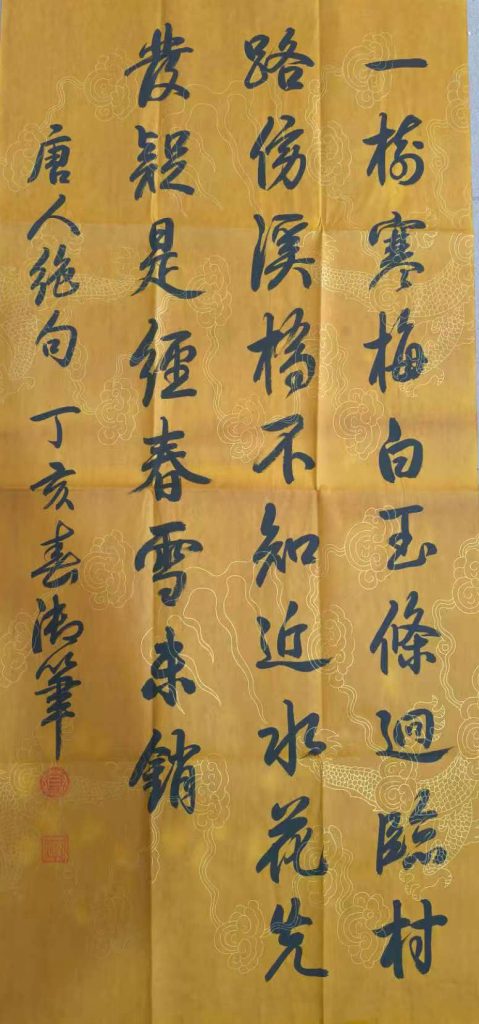 一樹寒梅白玉條迥臨村
路傍溪橋不知近水花先
發疑是經春雪未銷
唐人絶句 丁亥春御筆